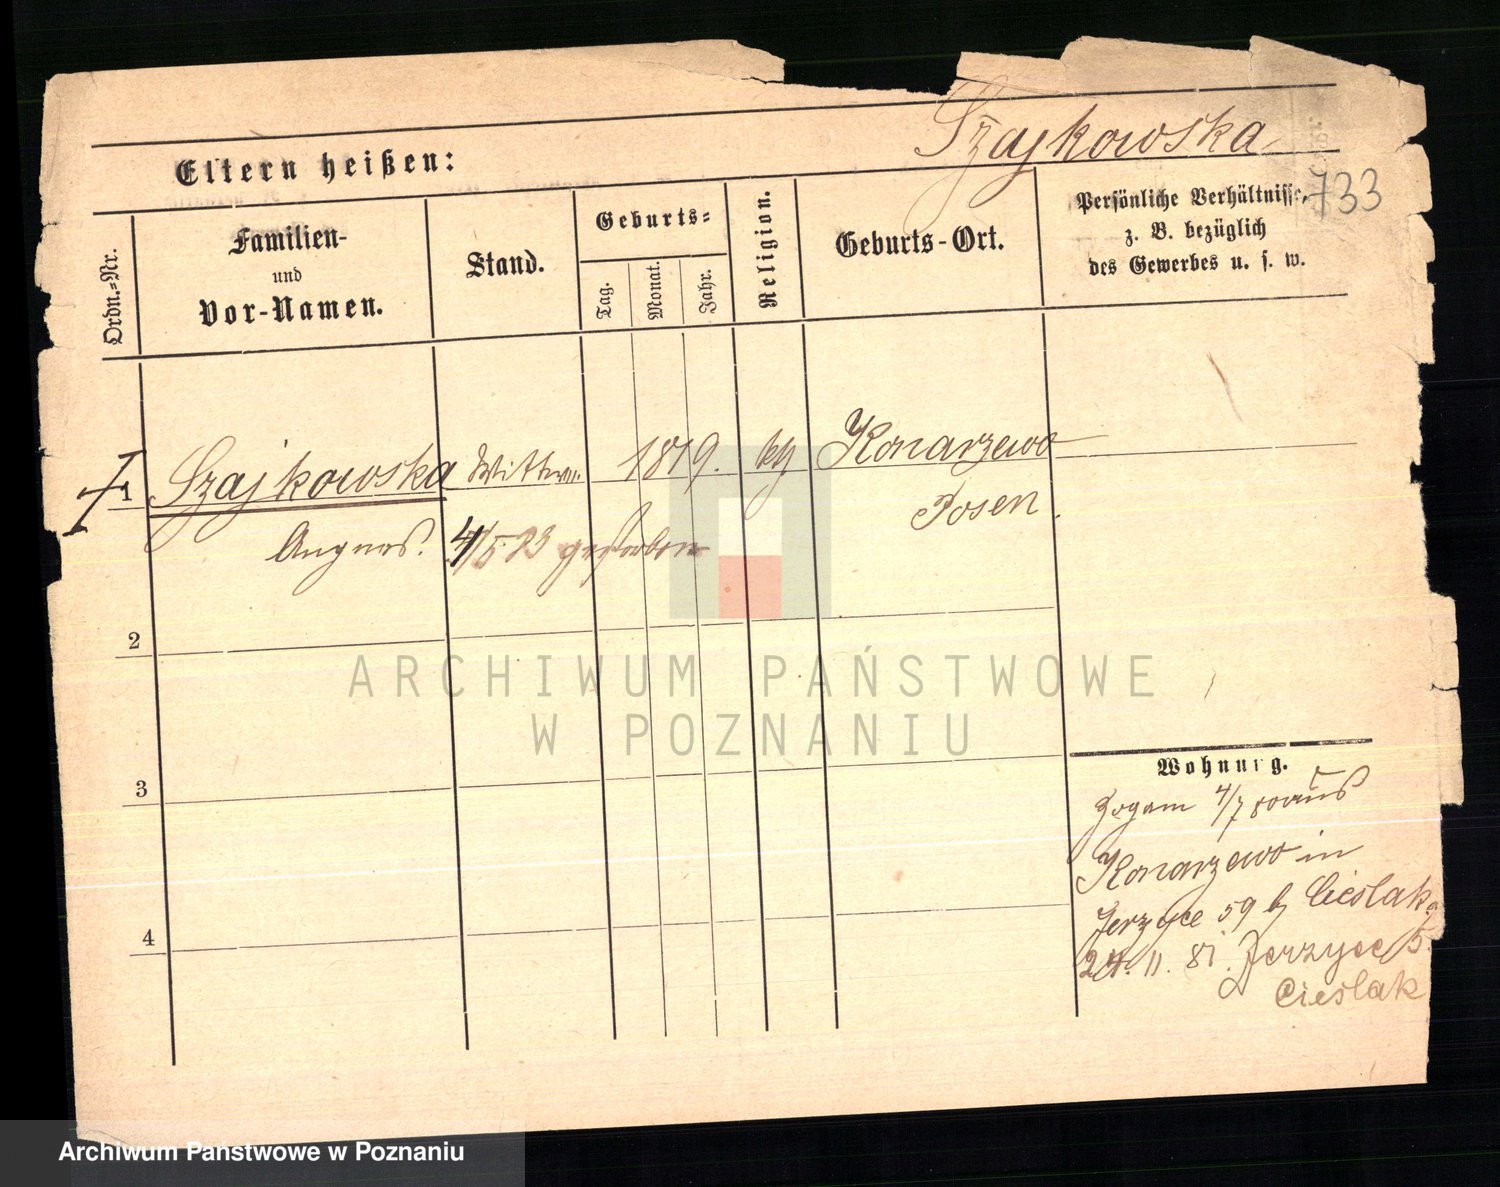 Szajkowska
Eltern heißen:
733
Ordn.-Nr.
Familien-
und
Vor-Namen.
Stand.
Geburts-
Tag.
Monat.
Jahr.
Religion.
Geburts-Ort.
Persönliche Verhältnisse,
z. B. bezüglich
des Gewerbes u. s. w.
1 Szajkowska Wittwe 1819. kth Konarzewo
Posen
Angnes. 4/5 83 gestorben
2
3
4
ARCHIWUM PAŃSTWOWE
W POZNANIU
Wohnung.
Zogam 4/7 80 aus
Konarzewo in
Jerzyce 59 b Cieslak
24. 11. 81. Jerzyce 5.
Cieslak
Archiwum Państwowe w Poznaniu